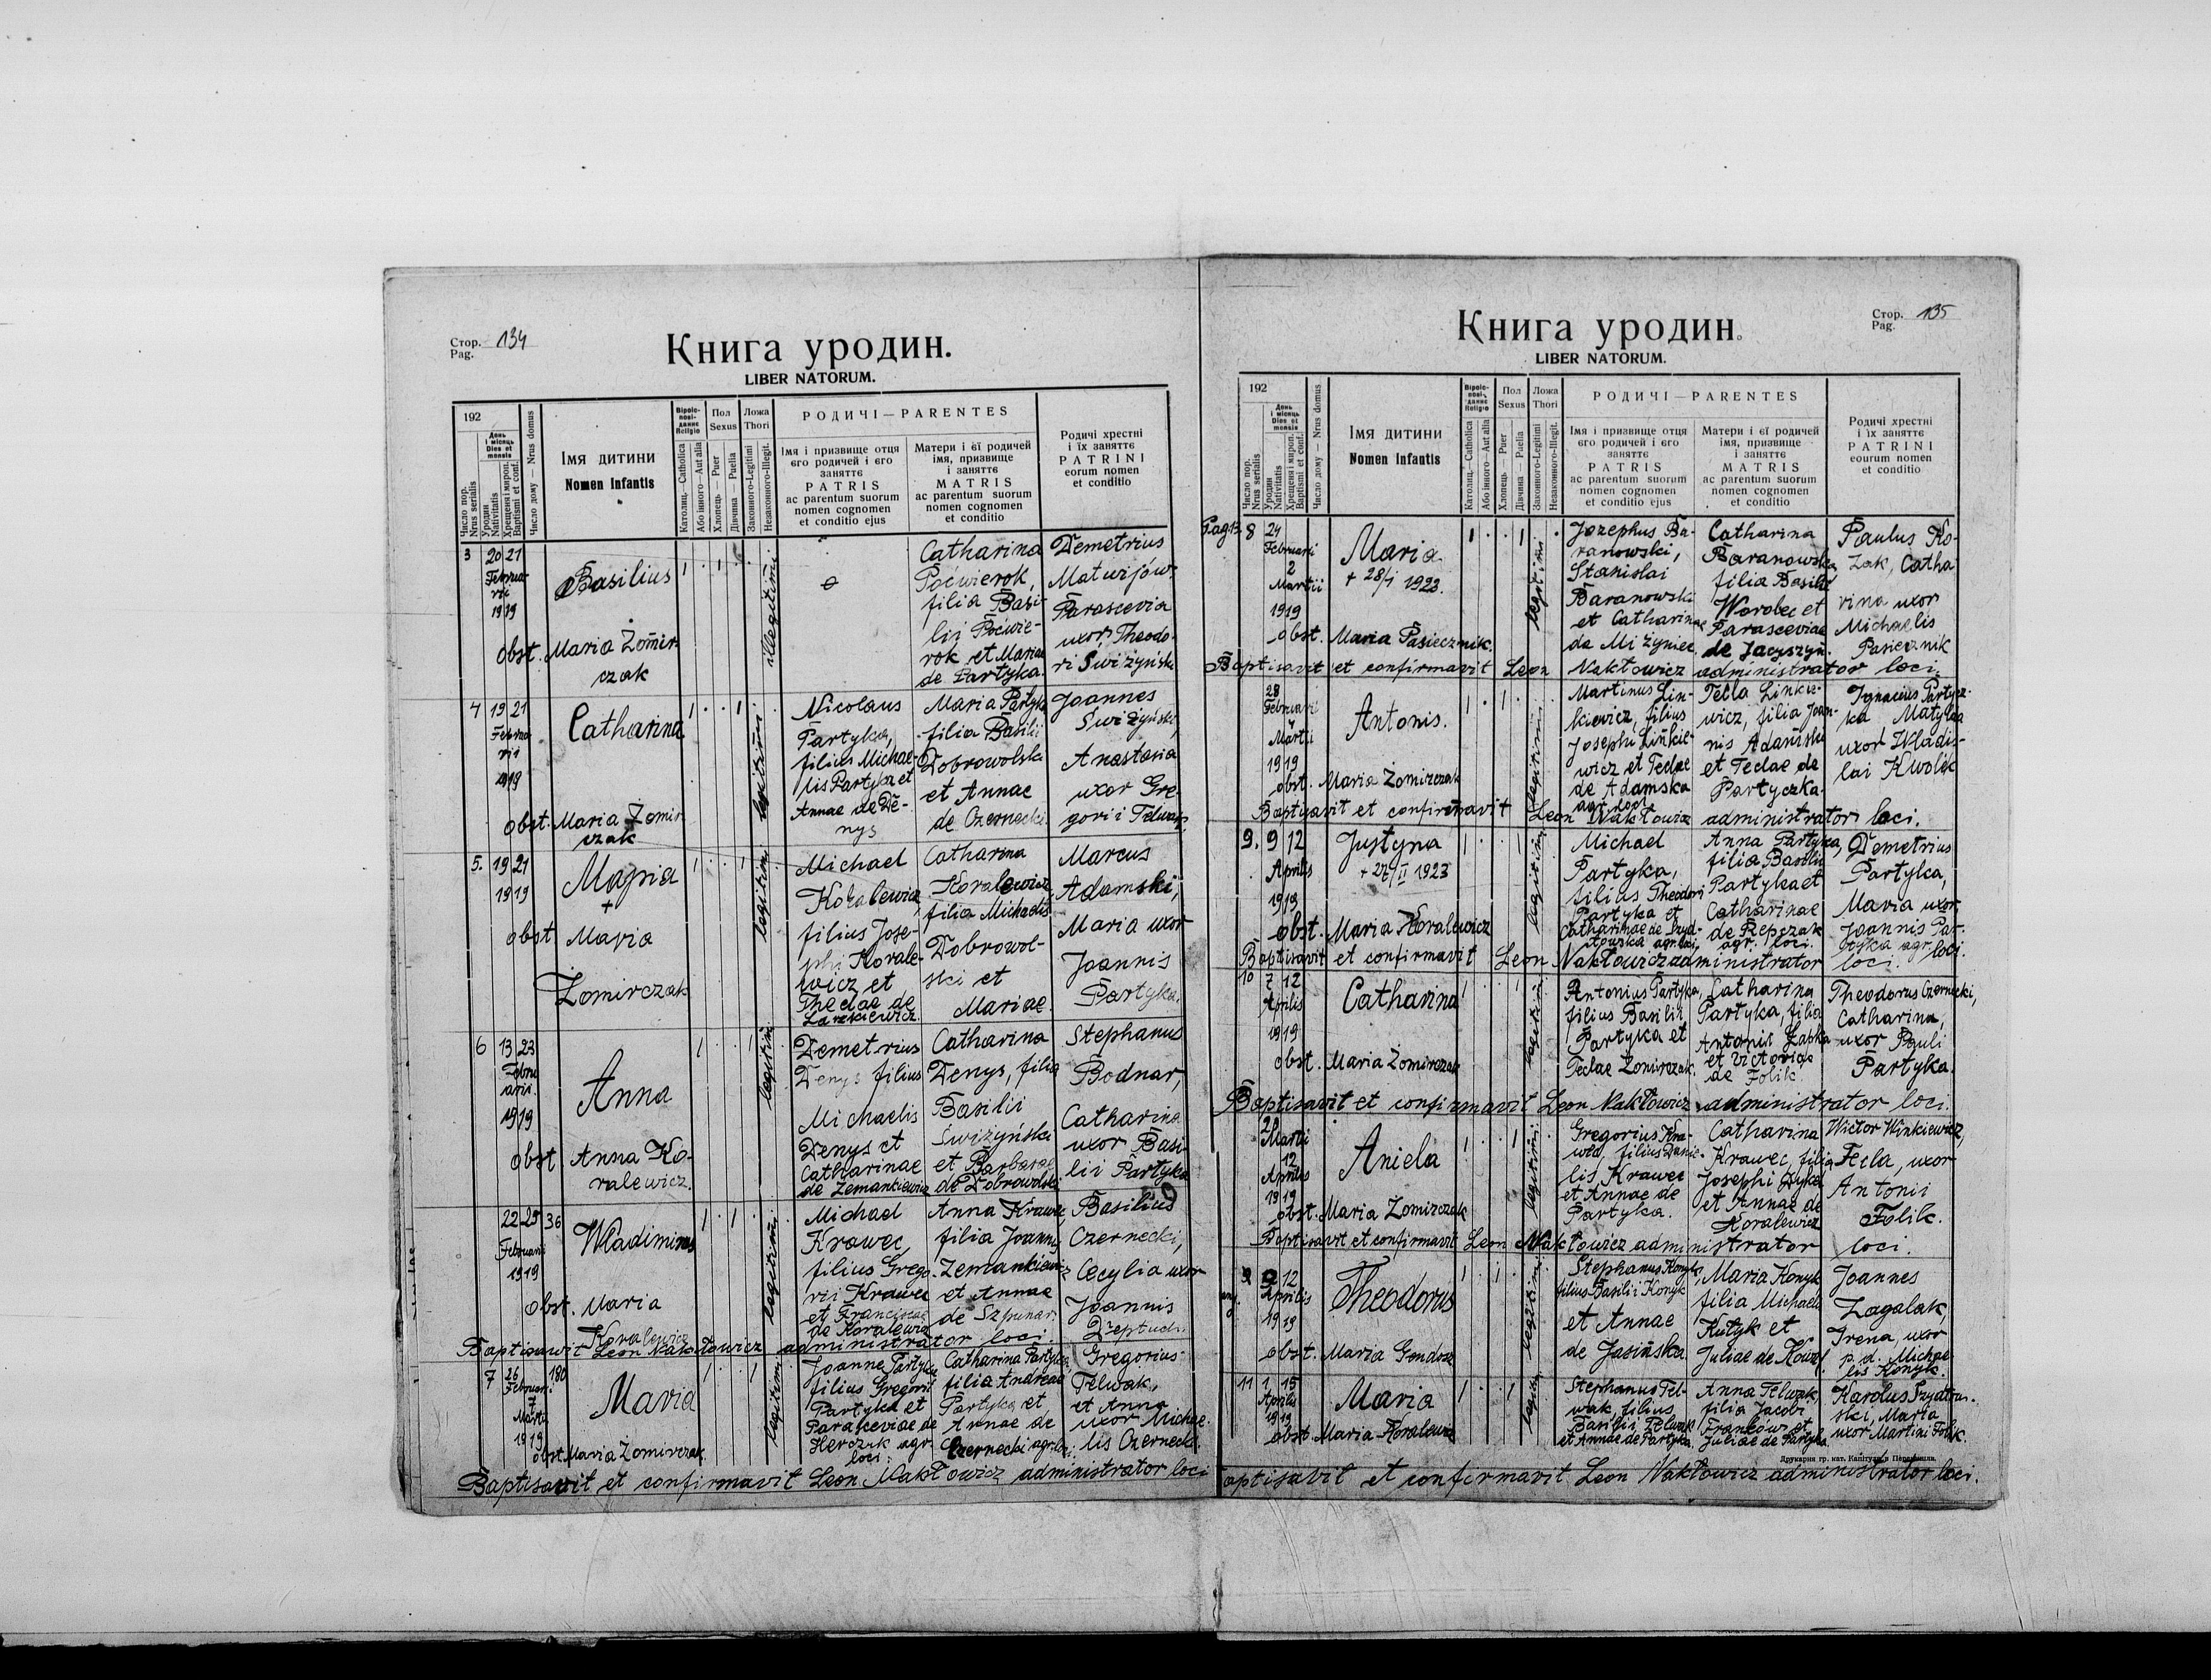 Стор. 134
Pag.
Книга уродин.
LIBER NATORUM.
192
Число пор.
Nrus serialis
День
і місяць
Dies et
mensis
Уродин
Nativitatis
Хрещеня і миропом.
Baptismi et conf.
Число дому — Nrus domus
Імя дитини
Nomen Infantis
Віроіс-
пові-
данне
Religio
Католиц.—Catholica
Або інного—Aut alia
Пол
Sexus
Хлопець — Puer
Дівчина — Puella
Ложа
Thori
Законного-Legitimi
Незаконного-Illegit.
РОДИЧІ — PARENTES
Імя і призвище отця
єго родичей і єго
заняттє
PATRIS
ac parentum suorum
nomen cognomen
et conditio ejus
Матери і єї родичей
імя, призвище
і заняттє
MATRIS
ac parentum suorum
nomen cognomen
et conditio
Родичі хрестні
і їх заняттє
PATRINI
eorum nomen
et conditio
3
20 21
Februa-
rii
1919
Basilius
1 . 1 .
illegitimi
Catharina
Poćwierok,
filia Basi-
lii Poćwie-
rok et Mariae
de Partyka.
Demetrius
Matwijów
Parascevia
uxor Theodo-
ri Swiżyński
obst. Maria Żomir-
czak
4
19 21
Februa-
rii
1919
Catharina
1 . . 1
legitimi
Nicolaus
Partyka,
filius Michae-
lis Partyka et
Annae de De-
nys
Maria Partyka
filia Basilii
Dobrowolski
et Annae
de Czernecki.
Joannes
Swiżyński,
Anastasia
uxor Gre-
gorii Telwak.
obst. Maria Żomir-
czak
5.
19 21
1919
Maria
+
1 . . 1
legitimi
Michael
Koralewicz,
filius Jose-
phi Korale-
wicz et
Theclae de
Catharina
Koralewicz
filia Michaelis
Dobrowol-
ski et
Mariae.
Marcus
Adamski,
Maria uxor
Joannis
Partyka.
obst Maria
Żomirczak
6
13 23
Febru
arii.
1919
Anna
1 . . 1
legitimi
Demetrius
Denys filius
Michaelis
Denys et
Catharinae
de Zemankiewicz
Catharina
Denys, filia
Basilii
Swiżyński
et Barbarae
de Dobrowolski
Stephanus
Bodnar,
Catharina
uxor Basi-
lii Partyka
obst Anna Ko-
ralewicz.
22 25 36
Februarii
1919
Wladimirus
1 . 1 .
legitimi
Michael
Krawec,
filius Grego-
rii Krawec
et Franciscae
de Koralewicz
Anna Krawec,
filia Joannis
Zemankiewicz
et Annae
de Szpunar.
Basilius
Czernecki,
Cecylia uxor
Joannis
obst. Maria
Koralewicz
Baptisavit Leon Nakłowicz administrator loci.
7
26
Februarii
7
Martii
1919
180
Maria
1 . . 1
legitimi
Joannes Partyka
filius Gregorii
Partyka et
Parasceviae de
Herczuk agr.
loci.
Catharina Partyka,
filia Andreae
Partyka et
Annae de
Czernecki agr. loci.
Gregorius
Telwak,
et Anna
uxor Michae-
lis Czernecki.
obst. Maria Żomirczak
Baptisavit et confirmavit Leon Nakłowicz administrator loci
Стор. 135
Pag.
Книга уродин.
LIBER NATORUM.
192
Число пор.
Nrus serialis
День
і місяць
Dies et
mensis
Уродин
Nativitatis
Хрещеня і миропом.
Baptismi et conf.
Число дому — Nrus domus
Імя дитини
Nomen Infantis
Віроіс-
пові-
данне
Religio
Католиц.—Catholica
Або інного—Aut alia
Пол
Sexus
Хлопець — Puer
Дівчина — Puella
Ложа
Thori
Законного-Legitimi
Незаконного-Illegit.
РОДИЧІ — PARENTES
Імя і призвище отця
єго родичей і єго
заняттє
PATRIS
ac parentum suorum
nomen cognomen
et conditio ejus
Матери і єї родичей
імя, призвище
і заняттє
MATRIS
ac parentum suorum
nomen cognomen
et conditio
Родичі хрестні
і їх заняттє
PATRINI
eourum nomen
et conditio
8
24
Februarii
2
Martii
1919
Maria
+ 28/I 1923.
1 . . 1
legitimi
Jozephus Ba-
ranowski,
Stanislai
Baranowski
et Catharinae
de Miżyniec.
Catharina
Baranowska,
filia Basilii
Worobec et
Parasceviae
de Jacyszyn.
Paulus Ko-
zak, Catha
rina uxor
Michaelis
Pasiecznik
obst. Maria Pasiecznik.
Baptisavit et confirmavit Leon Nakłowicz administrator loci.
28
Februarii
4
Martii
1919
Antonis.
1 . 1 .
legitimi
Martinus Lin-
kiewicz, filius
Josephi Linkie-
wicz et Teclae
de Adamska
agr. loci
Tecla Linkie-
wicz, filia Joan-
nis Adamski
et Teclae de
Partyczka.
Ignacius Partycz-
ka Matylda
uxor Wladis-
lai Kwolek
obst. Maria Żomirczak
Baptisavit et confirmavit Leon Nakłowicz administrator loci.
9.
9 12
Aprilis
1919
Justyna
+ 27/II 1923
1 . . 1
legitimi
Michael
Partyka,
filius Theodori
Partyka et
Anna Partyka,
filia Basilii
Partyka et
Catharinae
de Repczak
agr. loci.
Demetrius
Partyka,
Maria uxor
Joannis Par-
tyka agr. loci.
obst. Maria Koralewicz
Baptisavit et confirmavit Leon Nakłowicz administrator loci.
10
7 12
Aprilis
1919
Catharina
legitimi
Antonius Partyka,
filius Basilii
Partyka et
Teclae Żomirczak.
Catharina
Partyka, filia
Antonii Łapka
et Victoriae
de Folik.
Theodorus Czernecki,
Catharina,
uxor Pauli
Partyka.
obst. Maria Żomirczak
Baptisavit et confirmavit Leon Nakłowicz administrator loci.
2
Martii
12
Aprilis
1919
Aniela
1 . . 1
legitimi
Gregorius Kra-
wec, filius Danie-
lis Krawec
et Annae de
Partyka.
Catharina
Krawec, filia
Josephi Dyka
et Annae de
Koralewicz
Wictor Winkiewicz,
Tecla, uxor
Antonii
Folik.
obst. Maria Żomirczak
Baptisavit et confirmavit Leon Nakłowicz administrator loci.
12
Aprilis
1919
Theodorus
1 . 1 .
legitimi
Stephanus Konyk,
filius Basilii Konyk
et Annae
de Jasińska.
Maria Konyk
filia Michaelis
Kutyk et
Juliae de
Joannes
Zagalak,
Irena, uxor
p. d. Michae
lis Konyk.
obst. Maria
11
1 15
Aprilis
1919
Maria
1 . . 1
Stephanus Tel-
wak, filius
Basilii Telwak
et Annae de Partyka.
Anna Telwak,
filia Jacobi
Franków et
Juliae de Partyka.
Karolus Szydłow-
ski, Maria
uxor Martini Folik.
obst. Maria Koralewicz
Друкарня гр. кат. Капітули в Перемишли.
aptisavit et confirmavit Leon Nakłowicz administrator loci.